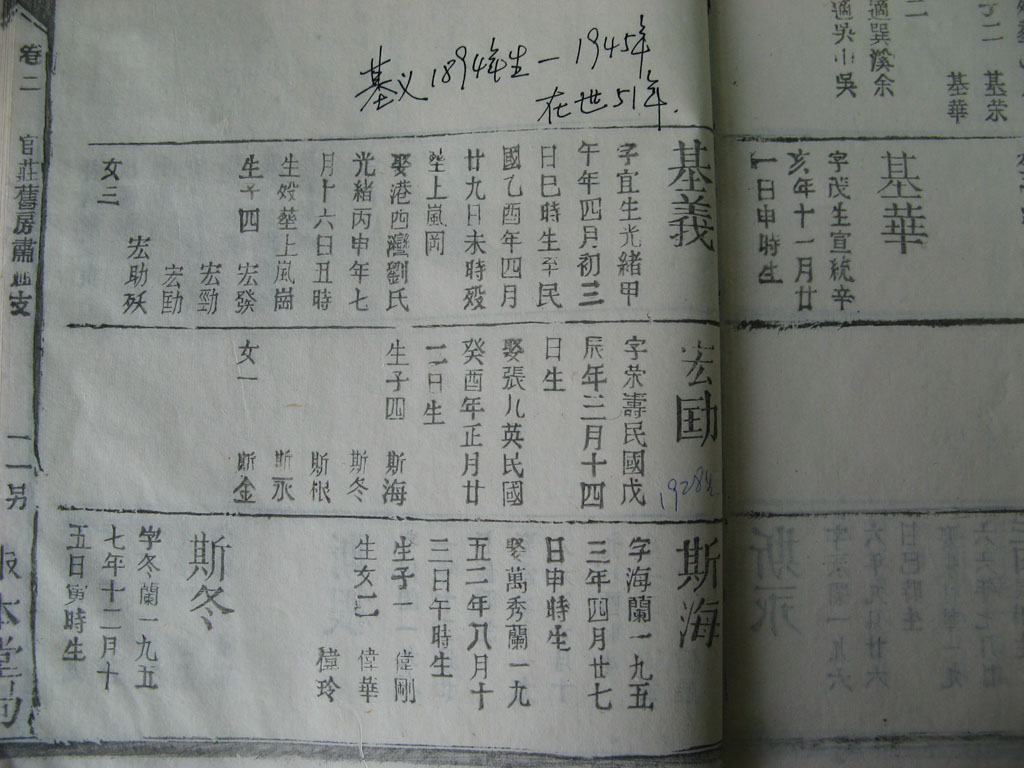 二
適巽溪余
適吳小吳
子二 基荣
基華
基華
字茂生宣統辛
亥年十一月廿
一日申時生
基义1894年生—1945年
在世51年.
基義
字宜生光緒甲
午年四月初三
日巳時生至民
國乙酉年四月
廿九日未時殁
塟上嵐岡
娶港西灣劉氏
光緒丙申年七
月十六日丑時
生殁塟上嵐崗
生子四 宏發
宏勁
宏勛
宏助殀
女三
宏勛
1928年
字荣壽民國戊
辰年三月十四
日生
娶張九英民國
癸酉年正月廿
二日生
生子四 斯海
斯冬
斯根
斯永
女一 斯金
斯海
字海蘭一九五
三年四月廿七
日申時生
娶萬秀蘭一九
五二年八月十
三日午時生
生子一 偉剛
生女二 偉華
偉玲
斯冬
字冬蘭一九五
七年十二月十
五日寅時生
卷二
官莊舊房肅
支